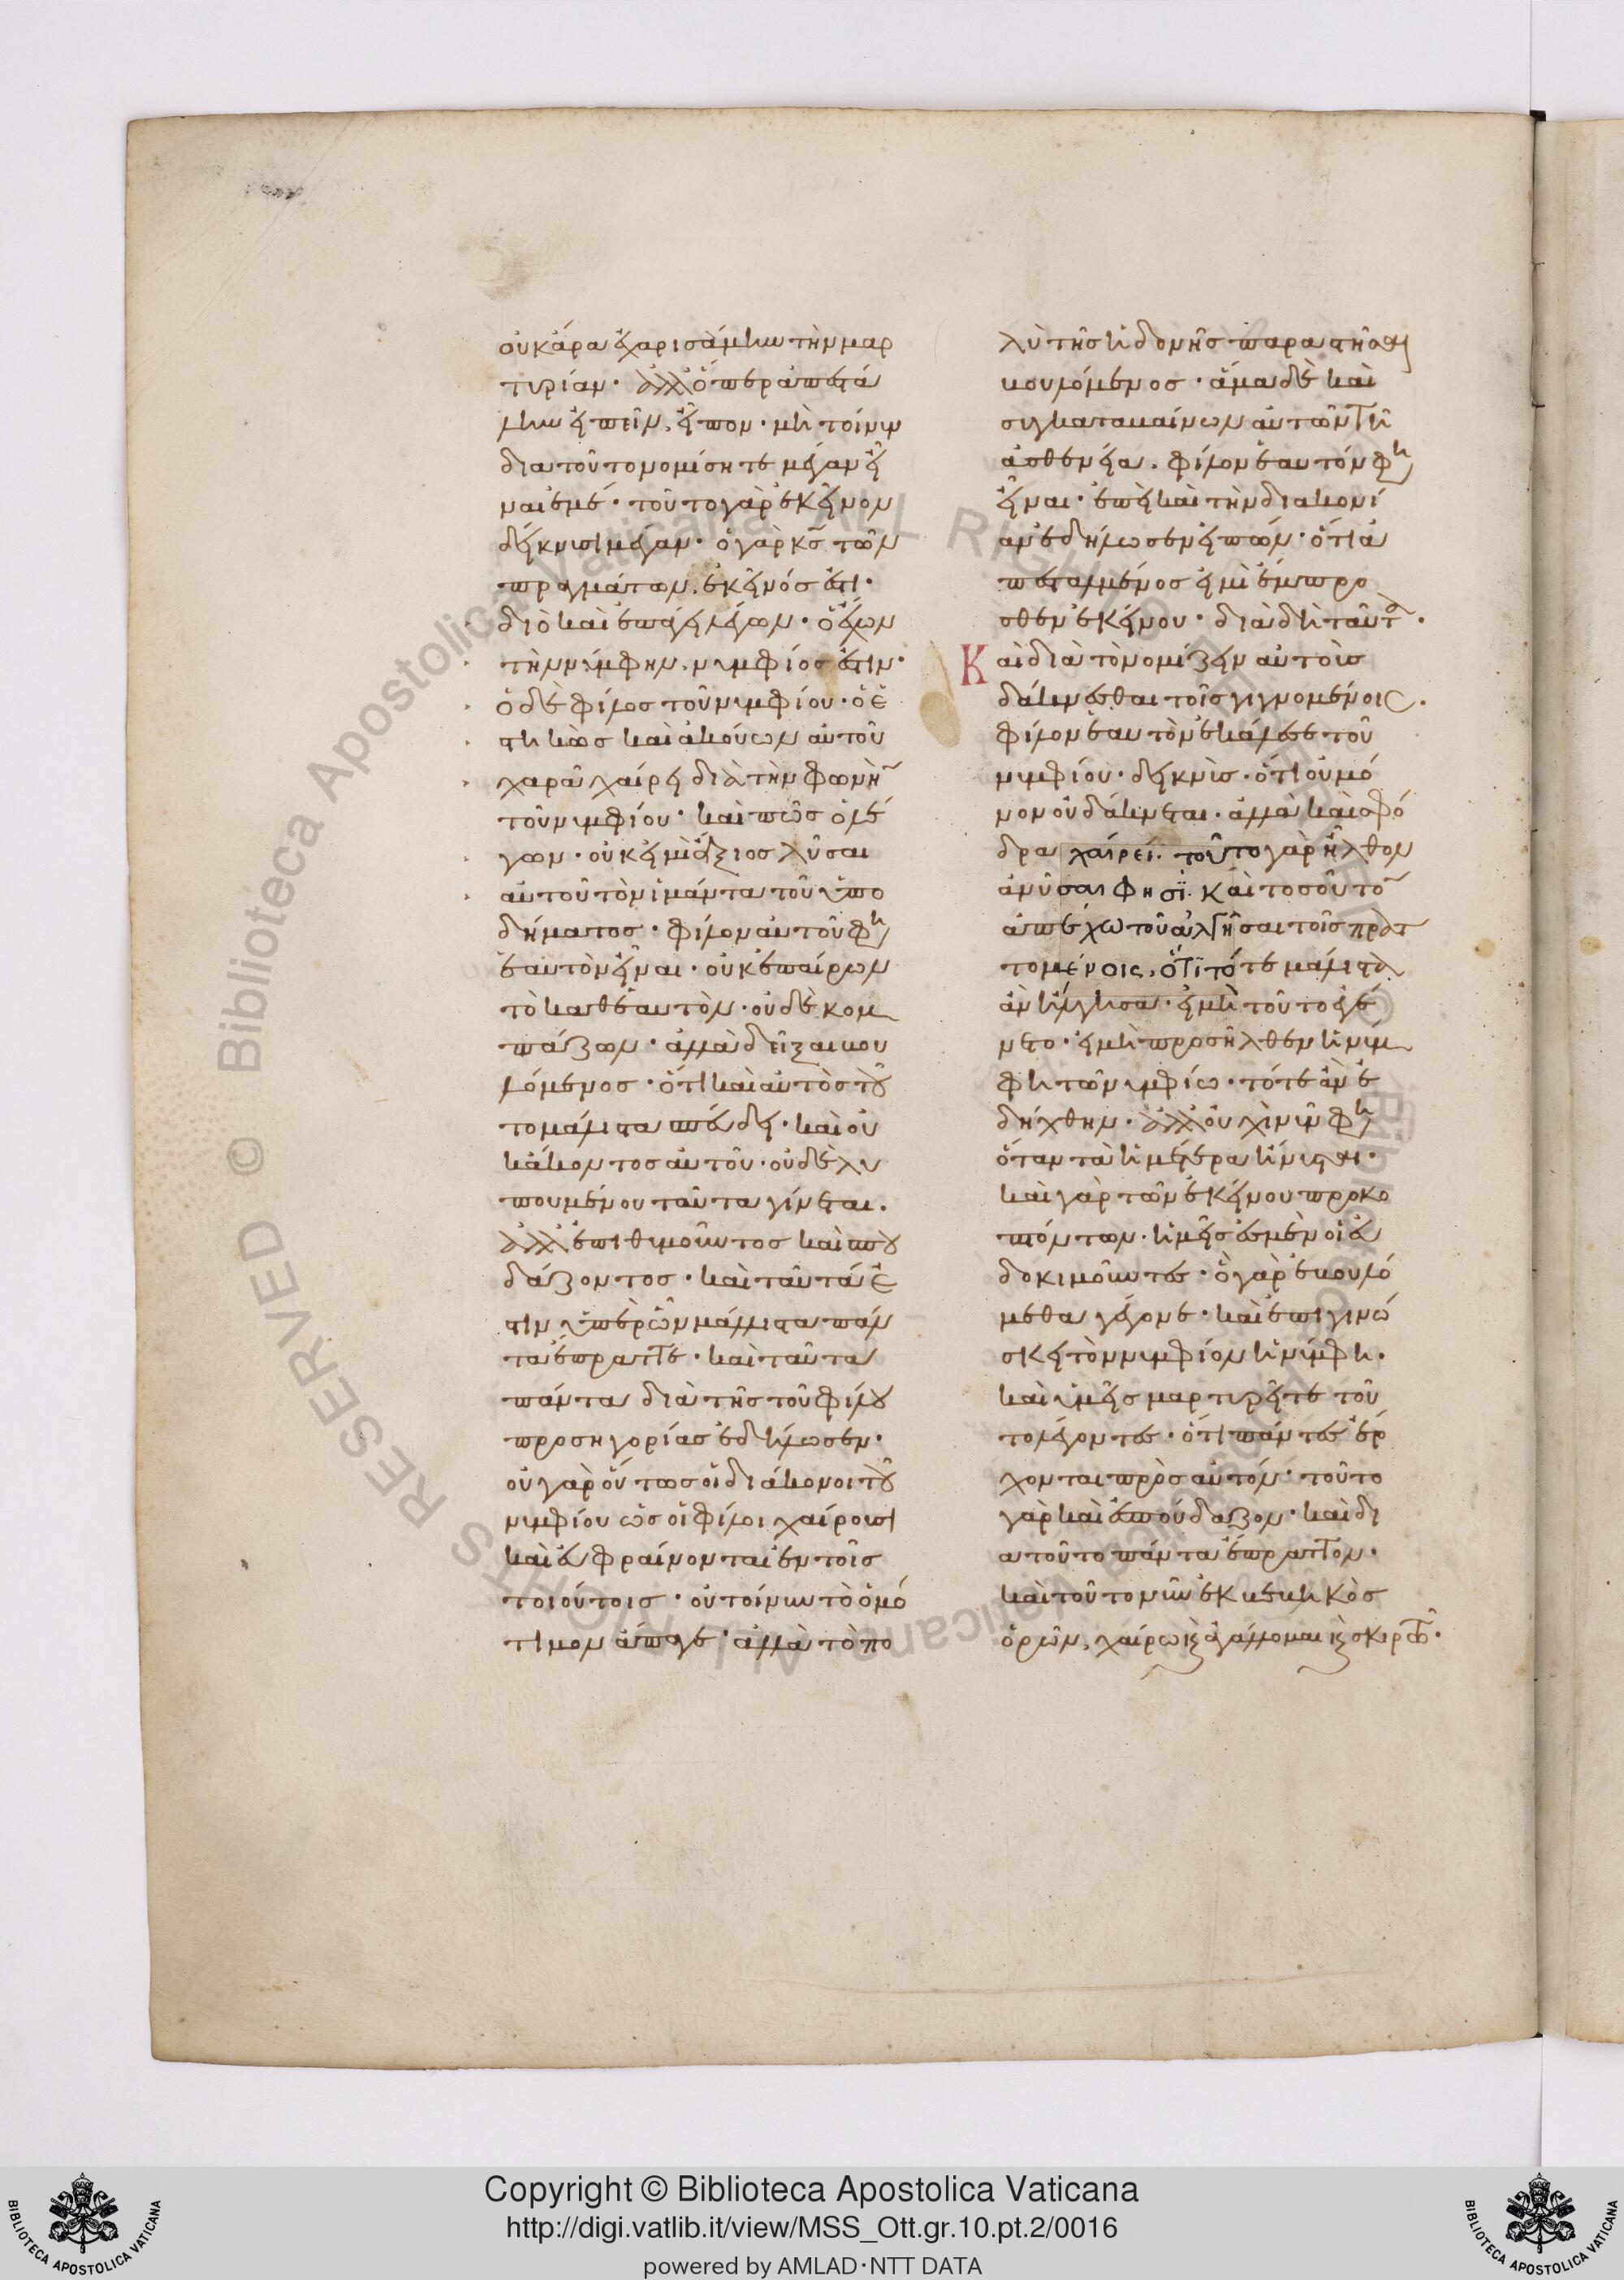 οὐκ ἄρα ἐχαρισάμην τὴν μαρ
τυρίαν· ἀλλ' ὅπερ ἀπεστά
λην εἰπεῖν, εἶπον· μὴ τοίνυν
διὰ τοῦτο νομίσητε μέγαν εἶ
ναι ἐμέ· τοῦτο γὰρ ἐκεῖνον
δείκνυσι μέγαν· ὁ γὰρ κς τῶν
πραγμάτων, ἐκεῖνός ἐστι·
διὸ καὶ ἐπάγει λέγων· ὁ ἔχων
τὴν νύμφην, νυμφίος ἐστιν·
ὁ δὲ φίλος τοῦ νυμφίου· ὁ ἑ
στηκὼς καὶ ἀκούων αὐτοῦ
χαρᾶ χαίρει διὰ τὴν φωνὴ
τοῦ νυμφίου· καὶ πῶς ὁ λέ
γων· οὐκ εἰμὶ ἄξιος λῦσαι
αὐτοῦ τὸν ἱμάντα τοῦ ὑπο
δήματος· φίλον αὐτοῦ φη
ἑαυτὸν εἶναι· οὐκ ἐπαίρων
τὸ καθ' ἑαυτὸν· οὐδὲ κομ
πάζων· ἀλλὰ δεῖξαι βου
λόμενος· ὅτι καὶ αὐτὸς τοῦ
το μάλιστα σπεύδει· καὶ οὐ
κ ἄκοντος αὐτοῦ· οὐδὲ λυ
πουμένου ταῦτα γίνεται.
ἀλλ' ἐπιθυμοῦντος καὶ σπου
δάζοντος· καὶ ταῦτά ἐ
στιν ὑπὲρ ὧν μάλλιστα πάν
τα ἔπραττε· καὶ ταῦτα
πάντα διὰ τῆς τοῦ φίλου
προσηγορίας ἐδήλωσεν·
οὐ γὰρ οὕτως οἱ διάκονοι τοῦ
νυμφίου ὡς οἱ φίλοι χαίρουσι
καὶ εὐφραίνονται ἐν τοῖς
τοιούτοις· οὐ τοίνυν τὸ ὁμό
τιμον ἄπαγε· ἀλλὰ τὸ πο
λὺ τῆς ἡδονῆς παραστῆσαι
βουλόμενος· ἅμα δὲ καὶ
συγκαταβαίνων αὐτῶν τῆ
ἀσθενεία. φίλον ἑαυτόν φη
εἶναι· ἐπεὶ καὶ τὴν διακονί
αν ἐδήλωσεν εἰπών· ὅτι ἀ
πεσταλμένος εἰμὶ ἔμπρο
σθεν ἐκείνου· διὰ δὴ ταῦτ.
Καὶ διὰ τὸ νομίζειν αὐτοὺς
δάκνεσθαι τοῖς γιγνομένοις.
φίλον ἑαυτὸν ἐκάλεσε τοῦ
νυμφίου· δεικνὺς· ὅτι οὐ μό
νον οὐ δάκνεται. ἀλλὰ καὶ σφό
δρα χαίρει. τοῦτο γὰρ ἦλθον
ἀνῦσαι φησϊ. καὶ τοσοῦτο
ἀπέχω τοῦ ἀλγῆσαι τοῖς πρατ
τομένοις, ὅτϊ τότε μάλιστα
ἂν ἤλγησα· εἰ μὴ τοῦτο ἐγέ
νετο· εἰ μὴ προσῆλθεν ἡ νύμ
φη τῶ νυμφίω· τότε ἂν ἐ
δήχθην· ἀλλ' οὐχὶ νῦν φη
ὅταν τὰ ἡμέτερα ἤνυσται·
καὶ γὰρ τῶν ἐκείνου προκο
πτόντων· ἡμεῖς ἐσμὲν οἱ εὐ
δοκιμοῦντες· ὃ γὰρ ἐβουλό
μεθα γέγονε· καὶ ἐπιγινώ
σκει τὸν νυμφίον ἡ νύμφη.
καὶ ὑμεῖς μαρτυρεῖτε τοῦ
το λέγοντες· ὅτι πάντες ἔρ
χονται πρὸς αὐτόν· τοῦτο
γὰρ καὶ ἐσπούδαζον· καὶ δι
α τοῦτο πάντα ἔπραττον·
καὶ τοῦτο νῦν ἐκβεβηκὸς
ὁρῶν, χαίρω κ ἀγάλλομαι κ σκιρτῶ·
Copyright © Biblioteca Apostolica Vaticana
http://digi.vatlib.it/view/MSS_Ott.gr.10.pt.2/0016
powered by AMLAD·NTT DATA